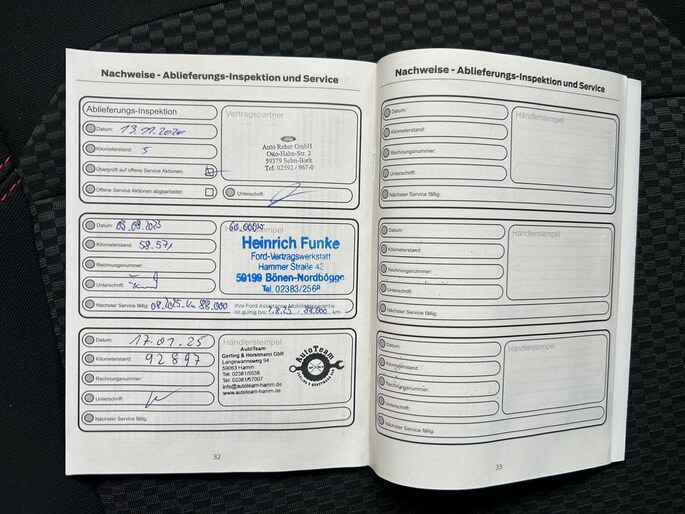 Nachweise - Ablieferungs-Inspektion und Service
Ablieferungs-Inspektion
Datum: 13.11.2020
Kilometerstand: 5
Überprüft auf offene Service Aktionen:
Offene Service Aktionen abgearbeitet:
Vertragspartner
Ford
Auto Reber GmbH
Otto-Hahn-Str. 2
59379 Selm-Bork
Tel. 02592 / 967-0
Unterschrift:
Datum: 08.08.2023
Kilometerstand: 58.571
Rechnungsnummer:
Unterschrift:
Nächster Service fällig: 08.2025 - Km 88.000
60.000er
Heinrich Funke
Ford-Vertragswerkstatt
Hammer Straße 42
59199 Bönen-Nordbögge
Tel. 02383/2568
Ihre Ford Assistance Mobilitätsgarantie
ist gültig bis: 1.8.25 / 88.000 km
Datum: 17.01.25
Kilometerstand: 92897
Rechnungsnummer:
Unterschrift:
Nächster Service fällig:
Händlerstempel
AutoTeam
Gerling & Horstmann GbR
Langewanneweg 94
59063 Hamm
Tel: 02381/5538
Tel: 02381/57007
info@autoteam-hamm.de
www.autoteam-hamm.de
AutoTeam
32
Nachweise - Ablieferungs-Inspektion und Service
Datum:
Kilometerstand:
Rechnungsnummer:
Unterschrift:
Nächster Service fällig:
Händlerstempel
Datum:
Kilometerstand:
Rechnungsnummer:
Unterschrift:
Nächster Service fällig:
Händlerstempel
Datum:
Kilometerstand:
Rechnungsnummer:
Unterschrift:
Nächster Service fällig:
Händlerstempel
33